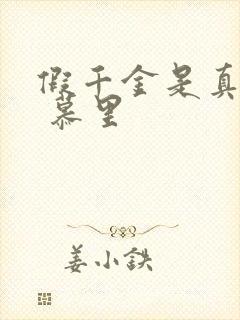 假千金是真
慕里
姜小鉄